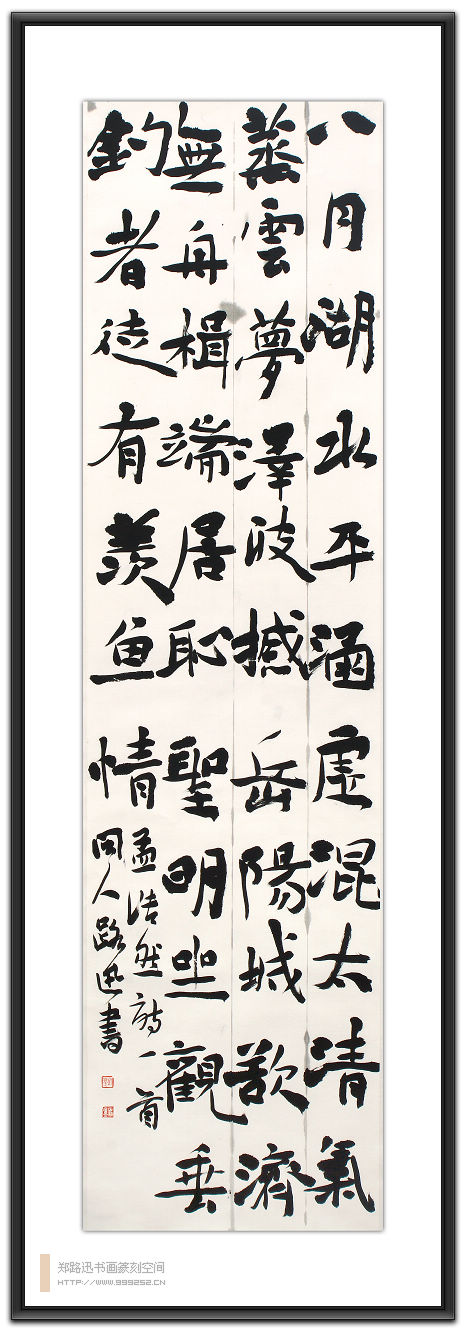 八月湖水平涵虛混太清氣
蒸雲夢澤波撼岳陽城欲濟
無舟楫端居恥聖明坐觀垂
釣者徒有羨鱼情
孟浩然詩一首
人路迅書
郑路迅书画篆刻空间
HTTP://WWW.999252.CN